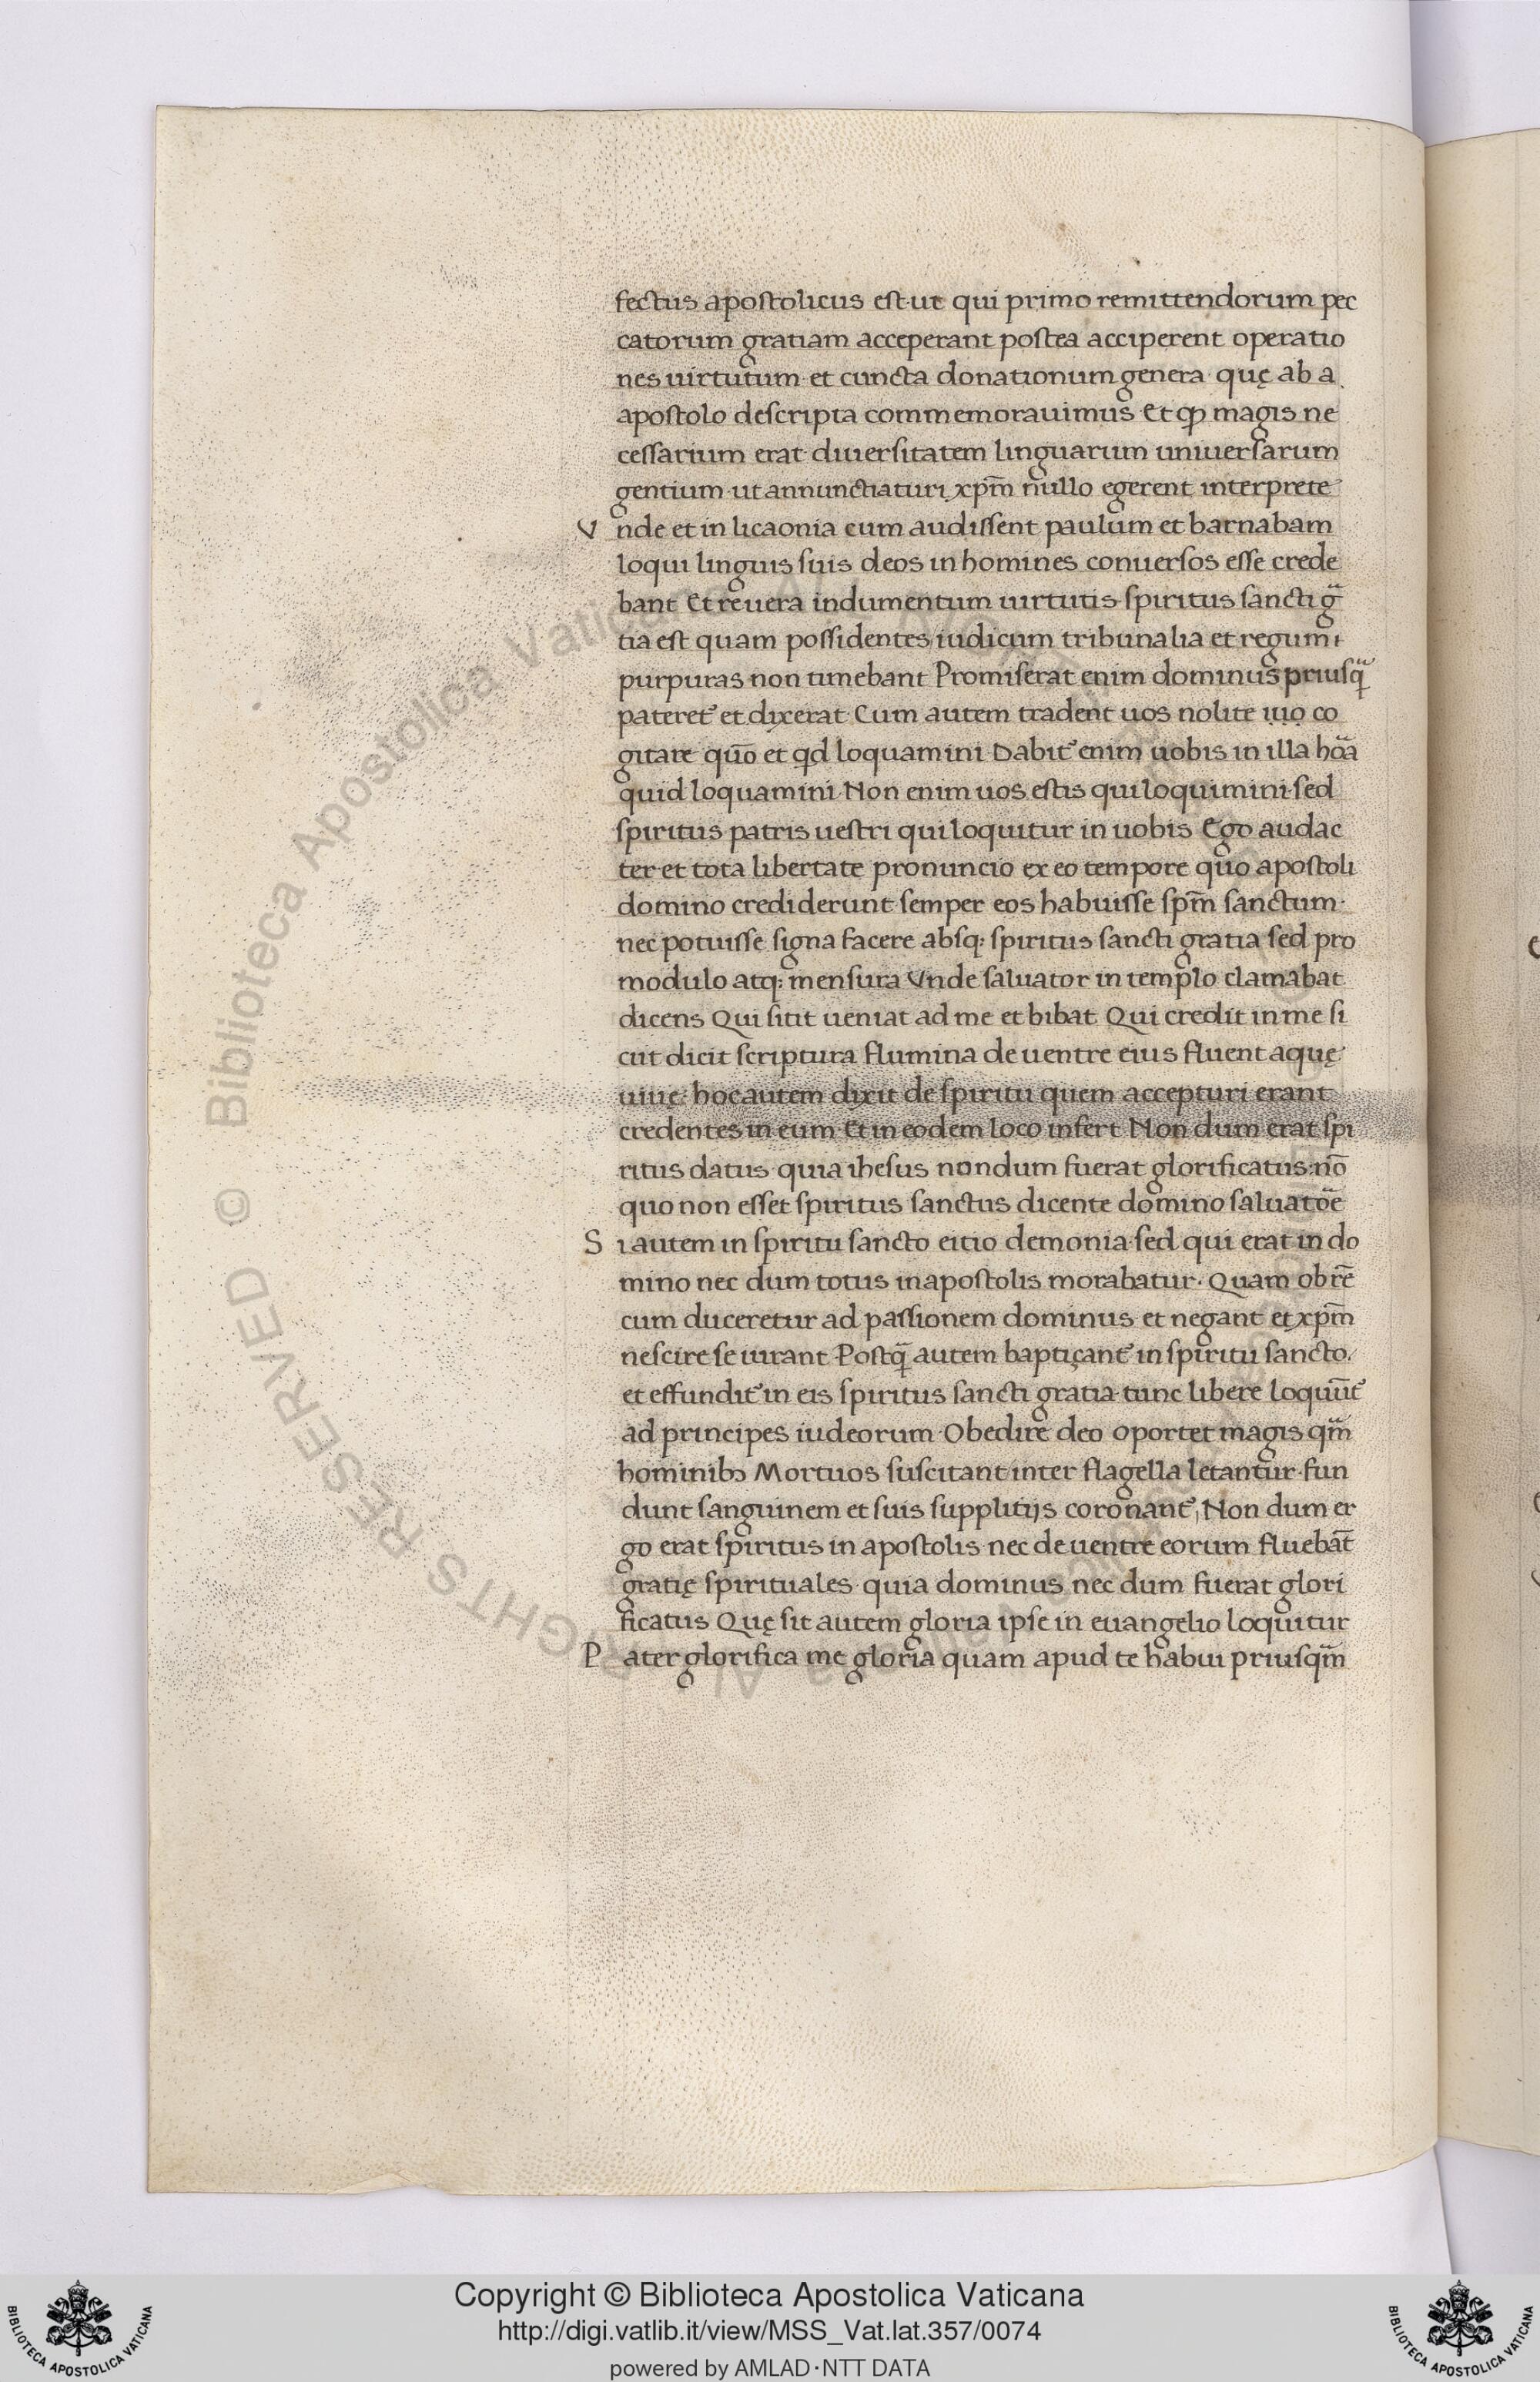 fectus apostolicus est·ut qui primo remittendorum pec
catorum gratiam acceperant postea acciperent operatio
nes uirtutum· et cuncta donationum genera· quę ab a
apostolo descripta commemorauimus· Et qp magis ne
cessarium erat· diuersitatem linguarum uniuersarum
gentium· ut annunctiaturi xpm̅ nullo egerent interprete
V nde et in licaonia cum audissent paulum et barnabam
loqui linguis suis deos in homines conuersos esse crede
bant· Et reuera indumentum uirtutis· spiritus sancti g̅
tia est quam possidentes iudicum tribunalia et regum
purpuras non timebant· Promiserat enim dominus priusq̅
pateret' et dixerat· Cum autem tradent uos nolite
co
gitare quo̅ et qd loquamini· Dabit' enim uobis in illa hoa̅
quid loquamini· Non enim uos estis qui loquimini·sed
spiritus patris uestri qui loquitur in uobis· Ego audac
ter et tota libertate pronuncio ex eo tempore quo apostoli
domino crediderunt· semper eos habuisse spm̅ sanctum·
nec potuisse signa facere absq; spiritus sancti gratia·sed pro
modulo atq; mensura· Vnde saluator in templo clamabat
dicens· Qui sitit ueniat ad me et bibat· Qui credit in me si
cut dicit scriptura flumina de uentre eius fluent aquę
uiuę: hoc autem dixit de spiritu quem accepturi erant
credentes in eum· Et in eodem loco infert· Non dum erat spi
ritus datus· quia ihesus nondum fuerat glorificatus: no̅
quo non esset spiritus sanctus dicente domino saluatoe̅
S i autem in spiritu sancto eitio demonia· sed qui erat in do
mino nec dum totus in apostolis morabatur· Quam ob re̅
cum duceretur ad passionem dominus et negant et xpm̅
nescire se iurant· Postq̅ autem baptiçant' in spiritu sancto·
et effundit' in eis spiritus sancti gratia· tunc libere loquu̅t'
ad principes iudeorum· Obedire deo oportet magis qm̅
hominibɔ Mortuos suscitant·inter flagella letantur·fun
dunt sanguinem et suis supplitijs coronant', Non dum er
go erat spiritus in apostolis· nec de uentre eorum flueba̅t
gratię spirituales· quia dominus nec dum fuerat glori
ficatus· Quę sit autem gloria ipse in euangelio loquitur
P ater glorifica me gloria quam apud te habui priusqm̅
© Biblioteca Apostolica Vaticana
ALL RIGHTS RESERVED
Copyright © Biblioteca Apostolica Vaticana
http://digi.vatlib.it/view/MSS_Vat.lat.357/0074
powered by AMLAD·NTT DATA
BIBLIOTECA APOSTOLICA VATICANA
BIBLIOTECA APOSTOLICA VATICANA